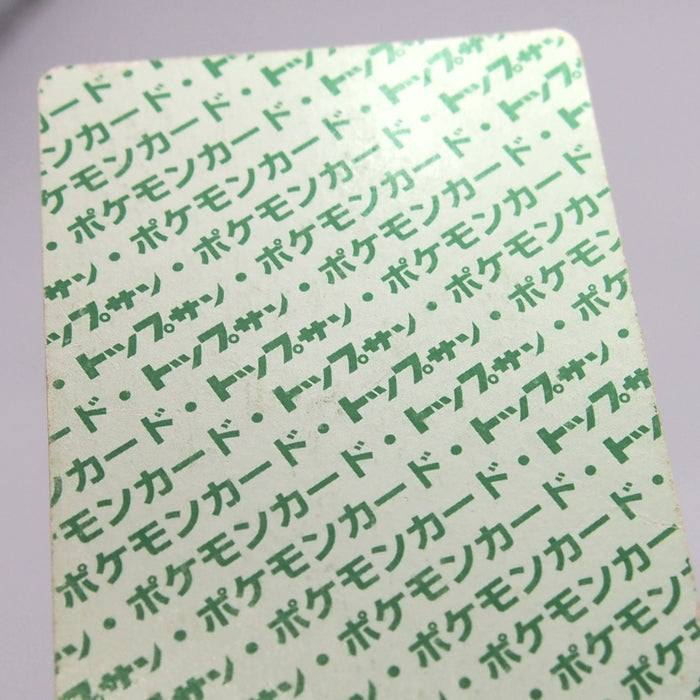 ード・
ンカード・トップ
ケモンカード・トップサン
・ポケモンカード・トップサン
サン・ポケモンカード・トップサン
ップサン・ポケモンカード・トップ
・トップサン・ポケモンカード・ト
ド・トップサン・ポケモンカード
カード・トップサン・ポケモンカー
モンカード・トップサン・ポケモン
ポケモンカード・トップサン・ポケ
・ポケモンカード・トップサン・
サン・ポケモンカード・トップサン
トップサン・ポケモンカード・トップ
サン・ポケモンカード・ト
・ポケモンカード・
ポケモンカー
ポケモン
ポケ